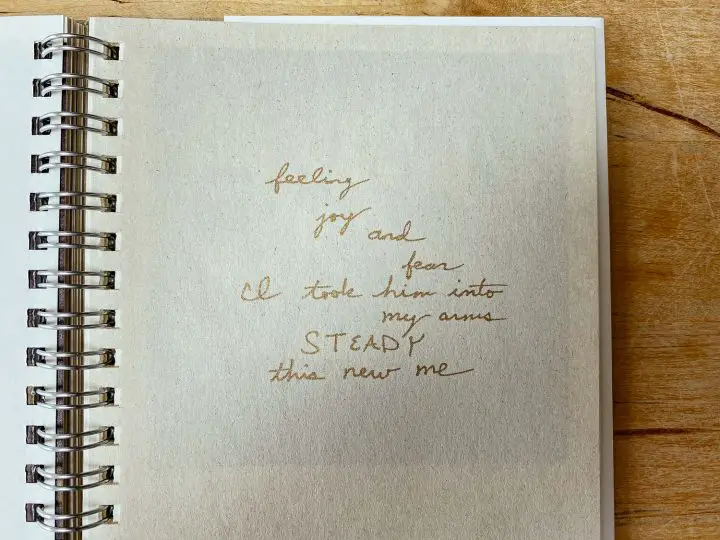 feeling
joy
and
fear
I took him into
my arms
STEADY
this new me